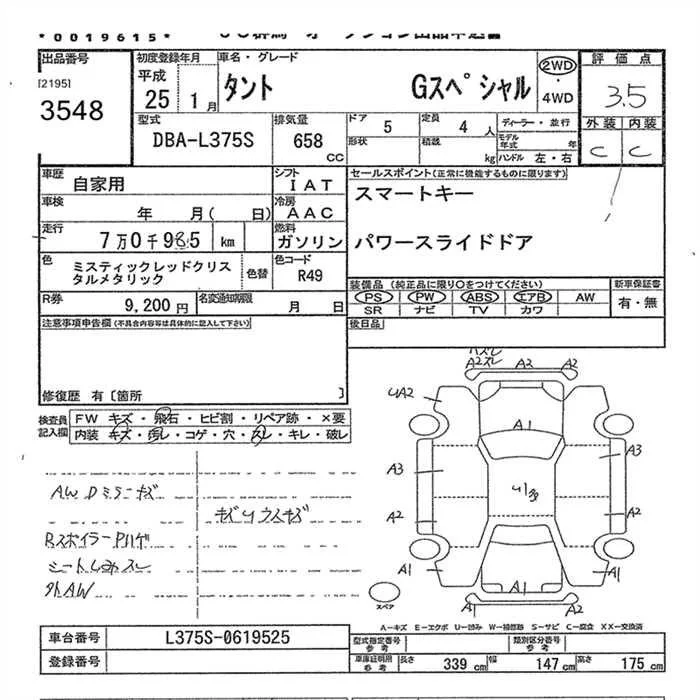 *0019615*
出品番号
[2195]
3548
初度登録年月
平成
25 1月
車名・グレード
タント Gスペシャル
2WD
・
4WD
評価点
3.5
外装 内装
C C
型式
DBA-L375S
排気量
658
CC
ドア
5
定員
4人
形状
積載
kg
ディーラー・並行
モデル年式 年
ハンドル 左・右
車歴
自家用
シフト
IAT
車検
年 月( 日)
冷房
AAC
走行
7万0千985 km
燃料
ガソリン
色
ミスティックレッドクリスタルメタリック
色替
色コード
R49
R券
9,200円
名変通知期限
月 日
セールスポイント(正常に機能するものに限ります)
スマートキー
パワースライドドア
装備品(純正品に限り○をつけてください)
PS PW ABS エアB AW
SR ナビ TV カワ
新車保証書
有・無
後日品
注意事項申告欄(不具合内容等は具体的に記入して下さい)
修復歴 有[箇所 ]
検査員記入欄
FW キズ・飛石・ヒビ割・リペア跡・×要
内装 キズ・汚レ・コゲ・穴・スレ・キレ・破レ
AW Dミラーキズ
キズ〃ウスキズ
Rスポイラー Pハゲ
シートしみ スレ
外AW
ハズレ
A2スレ A2 A2
UA2
A1
A3 A3
A2 A2
A1 A1
A1
A1 A2
スペア
A-キズ E-エクボ U-凹み W-補修跡 S-サビ C-腐食 XX-交換済
車台番号
L375S-0619525
登録番号
型式指定番号
参考
類別区分番号
参考
車庫証明用
参考
長さ 339cm 幅 147cm 高さ 175cm